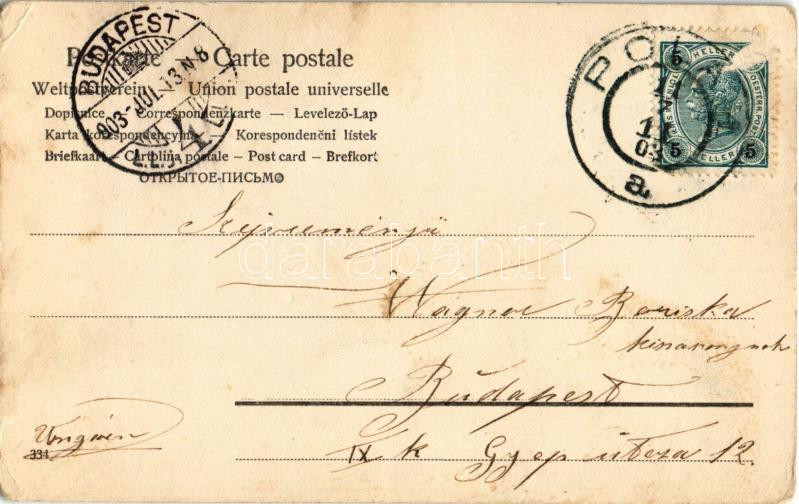 Postkarte – Carte postale
Weltpostverein – Union postale universelle
Dopisnice – Correspondenzkarte – Levelező-Lap
Karta korespondencyjna – Korespondenčni listek
Briefkaart – Cartolina postale – Post card – Brefkort
ОТКРЫТОЕ-ПИСЬМО
BUDAPEST
903 JUL. 13. N 8
4
POL
11
03
a
5 5
HELLER HELLER
5 5
darabanth
Wágner Boriska
Budapest
IX k Gyep utcza 12.
Ungarn
334